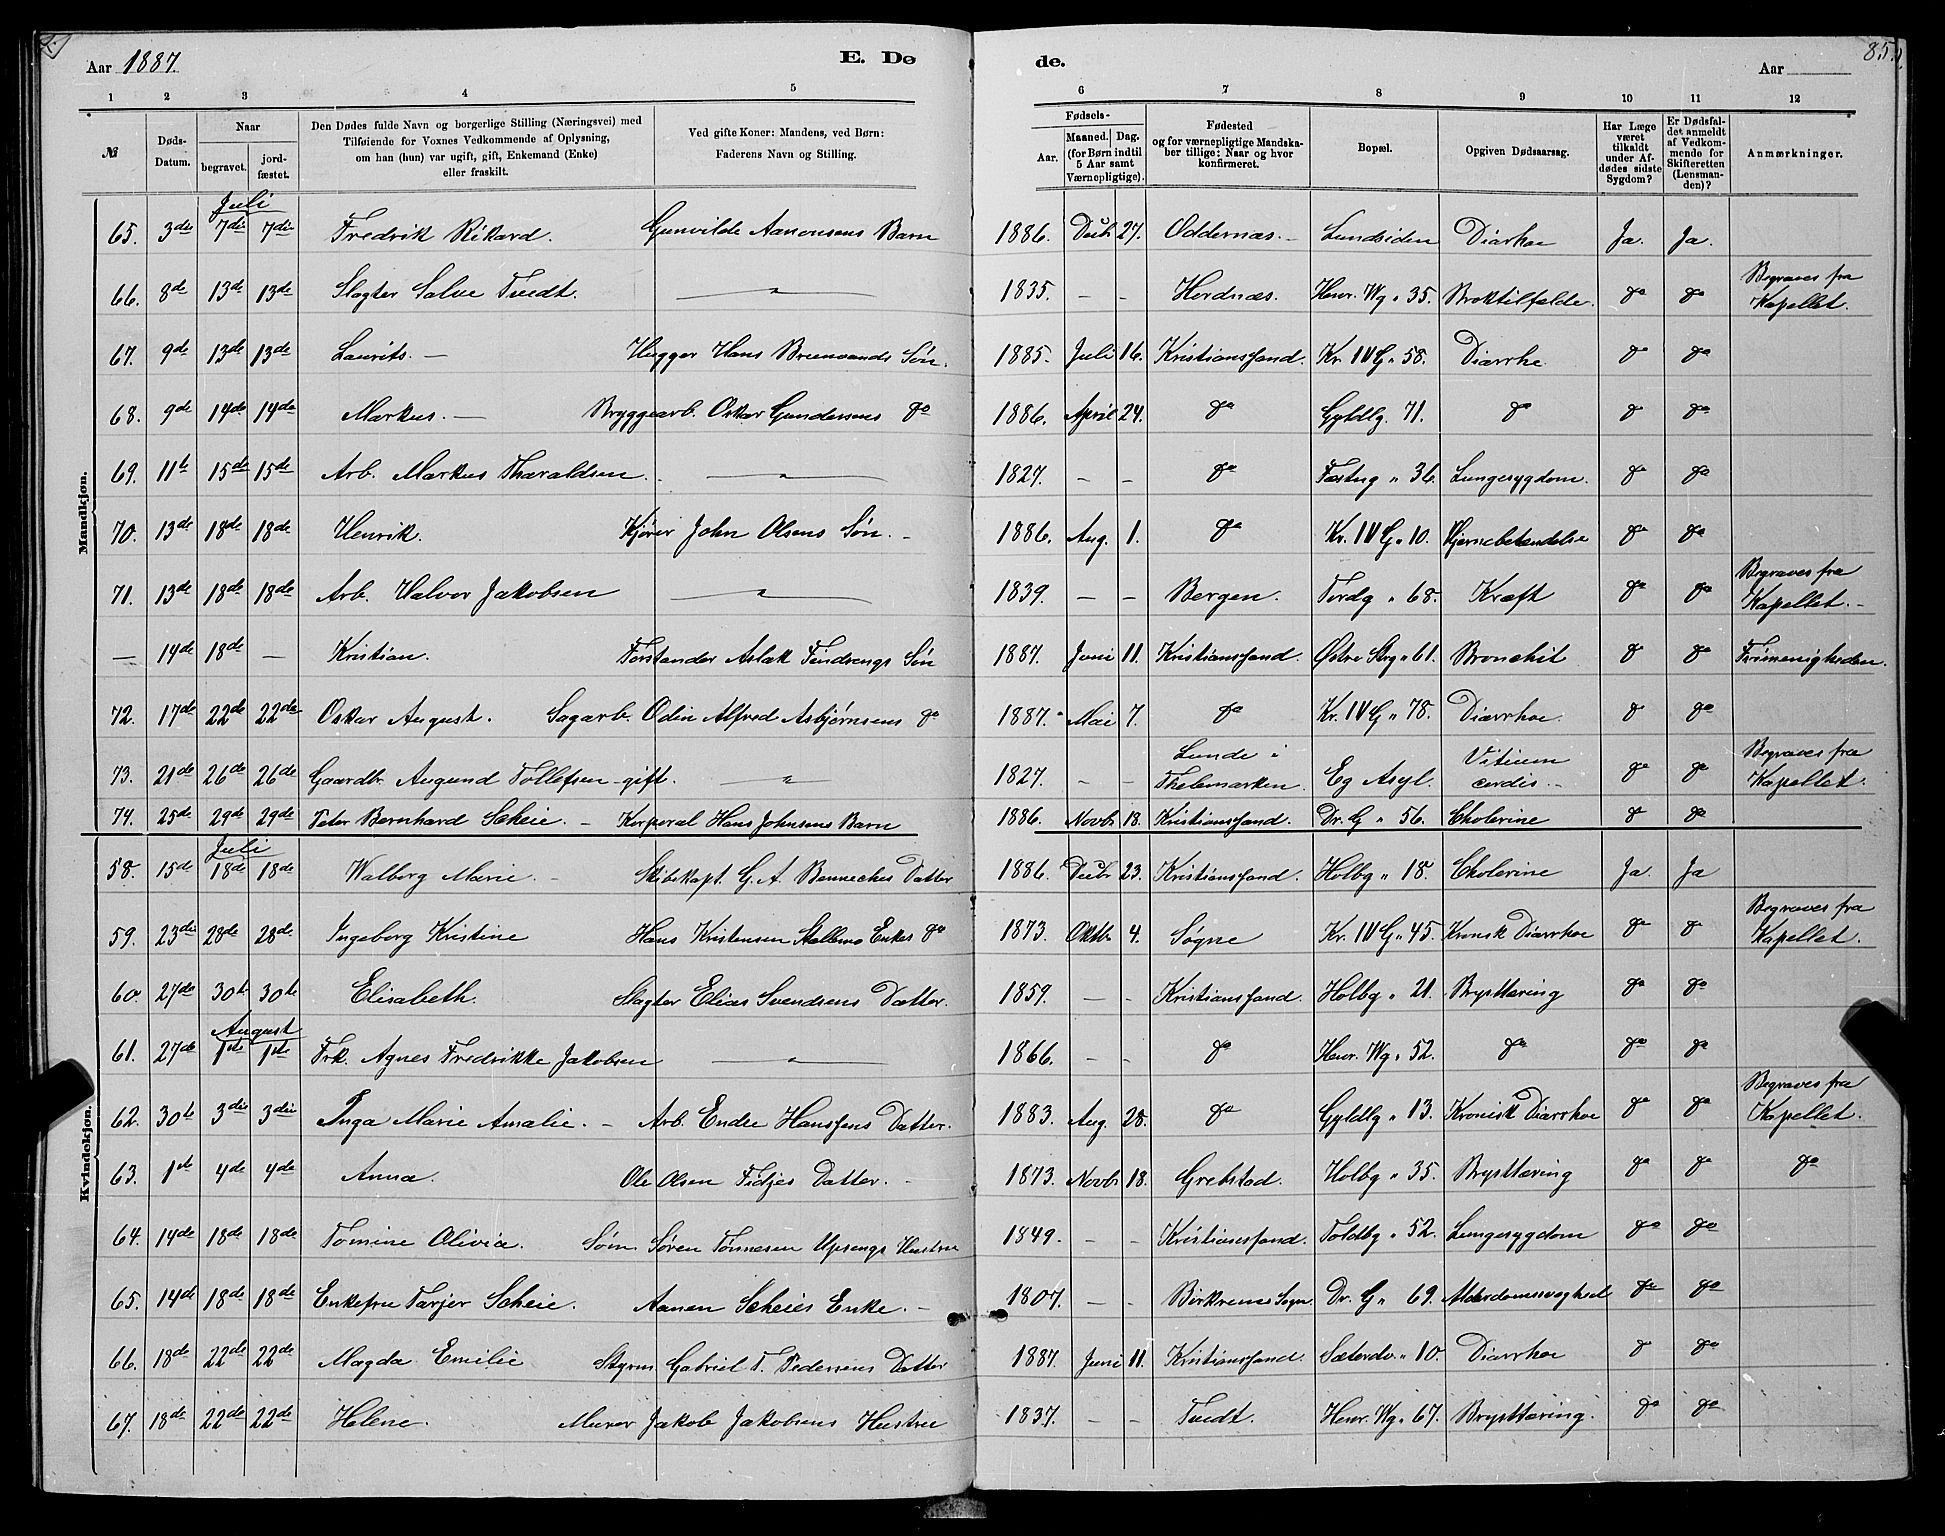 Aar 1887. E. Dø de. Aar 85.
1 2 3 4 5 6 7 8 9 10 11 12
№
Døds-Datum.
Naar begravet. jord-fæstet.
Den Dødes fulde Navn og borgerlige Stilling (Næringsvei) med Tilføiende for Voxnes Vedkommende af Oplysning, om han (hun) var ugift, gift, Enkemand (Enke) eller fraskilt.
Ved gifte Koner: Mandens, ved Børn: Faderens Navn og Stilling.
Fødsels-
Aar. Maaned. Dag. (for Børn indtil 5 Aar samt Værnepligtige).
Fødested og for værnepligtige Mandskaber tillige: Naar og hvor konfirmeret.
Bopæl.
Opgiven Dødsaarsag.
Har Læge været tilkaldt under Afdødes sidste Sygdom?
Er Dødsfaldet anmeldt af Vedkommende for Skifteretten (Lensmanden)?
Anmærkninger.
Mandkjøn.
Juli
65. 3die 7die 7die Fredrik Rikard. Gunvilde Aanonsens Barn 1886. Decbr 27. Oddernæs. – Lundsiden Diarhoe Ja. Ja.
66. 8de 13de 13de Slagter Salve Tvedt. — " — 1835. – – Hordnæs. Henr. Wg " 35. Broktilfælde. do do Begraves fra Kapellet.
67. 9de 13de 13de Laurits. – Hugger Hans Brunvands Søn. 1885. Juli 16. Kristianssand. Kr. IV G " 58. Diarrhe do do
68. 9de 14de 14de Markus. – Bryggearb. Oskar Gundersens do 1886. April 24. do Gyldlg. 71. do do do
69. 11te 15de 15de Arb. Markus Tharaldsen. — " — 1827. – – do Fæstng " 36. Lungesygdom. do do
70. 13de 18de 18de Henrik. Kjører John Olsens Søn. – 1886. Aug. 1. do Kr. IV G " 10. Hjernebetændelse do do
71. 13de 18de 18de Arb. Halvor Jakobsen — " — 1839. – – Bergen. Tordg " 68. Kræft do do Begraves fra Kapellet. –
— 14de 18de — Kristian. Forstander Aslak Findrengs Søn 1887. Juni 11. Kristianssand. Østre Strg " 61. Bronchit do do Frimenigheden.
72. 17de 22de 22de Oskar August. Sagarb. Odin Alfred Asbjørnsens do 1887. Mai 7. do Kr. IV G " 78. Diarrhoe. do do
73. 21de 26de 26de Gaardbr. Augund Tollefsen – gift. " 1827. – – Lunde i Thelemarken. Eg Asyl. Vitium cordis. – do do Begraves fra Kapellet.
74. 25de 29de 29de Peter Bernhard Scheie. – Korporal Hans Johnsens Barn 1886. Novbr 18. Kristianssand. Dr. G " 56. Cholerine do do
Kvindekjøn.
Juli
58. 15de 18de 18de Walborg Marie. – Skibskapt. G. A. Benneches Datter 1886. Decbr 23. Kristianssand. Holbg " 18. Cholerine Ja. Ja
59. 23die 28de 28de Ingeborg Kristine Hans Kristensen Stallemo Enkes do 1873. Oktbr 4. Søgne Kr. IV G " 45. Kronisk Diarrhoe do do Begraves fra Kapellet.
60 27de 30te 30te Elisabeth. Slagter Elias Svendsens Datter. 1859. – – Kristianssand. Holbg " 21. Brysttæring do do
August
61. 27de 1ste 1ste Frk. Agnes Fredrikke Jakobsen — " — 1866. – – do Henr. Wg " 52. do do do
62. 30te 3die 3die Inga Marie Amalie. – Arb. Endre Hanssens Datter. 1883. Aug. 28. do Gyldlg " 13. Kronisk Diarrhoe do do Begraves fra Kapellet.
63. 1ste 4de 4de Anna. Ole Olsen Fidjes Datter. – 1873. Novbr 18. Grebstad. Holbg " 35. Brysttæring do do do
64. 14de 18de 18de Tomine Olivia. Søm. Søren Tønnesen Upsengs Hustru 1849. – – Kristianssand. Toldbg " 52. Lungesygdom do do
65. 14de 18de 18de Enkefru Tarjer Scheie. Aanen Scheies Enke. – 1807. – – Birkrems Sogn. Dr. G " 69. Alderdomssvaghed do do
66. 18de 22de 22de Magda Emilie Styrm. Gabriel T. Pedersens Datter 1887. Juni 11. Kristianssand. Sæterdv. " 10. Diarrhoe do do
67. 18de 22de 22de Helene. Murer Jakob Jakobsens Hustru 1837. – – Tvedt. Henr. Wg " 67. Brysttæring. do do